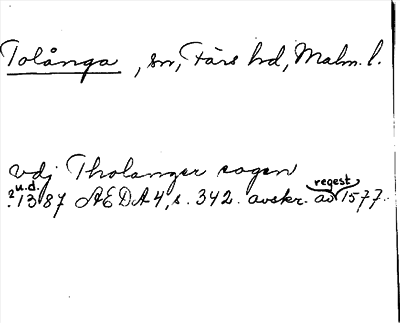 Tolånga, sn, Färs hd, Malm. l.
vdj Tholanger sogen
u.d. regest
?1387 AEDA 4, s. 342. avskr. av 1577.